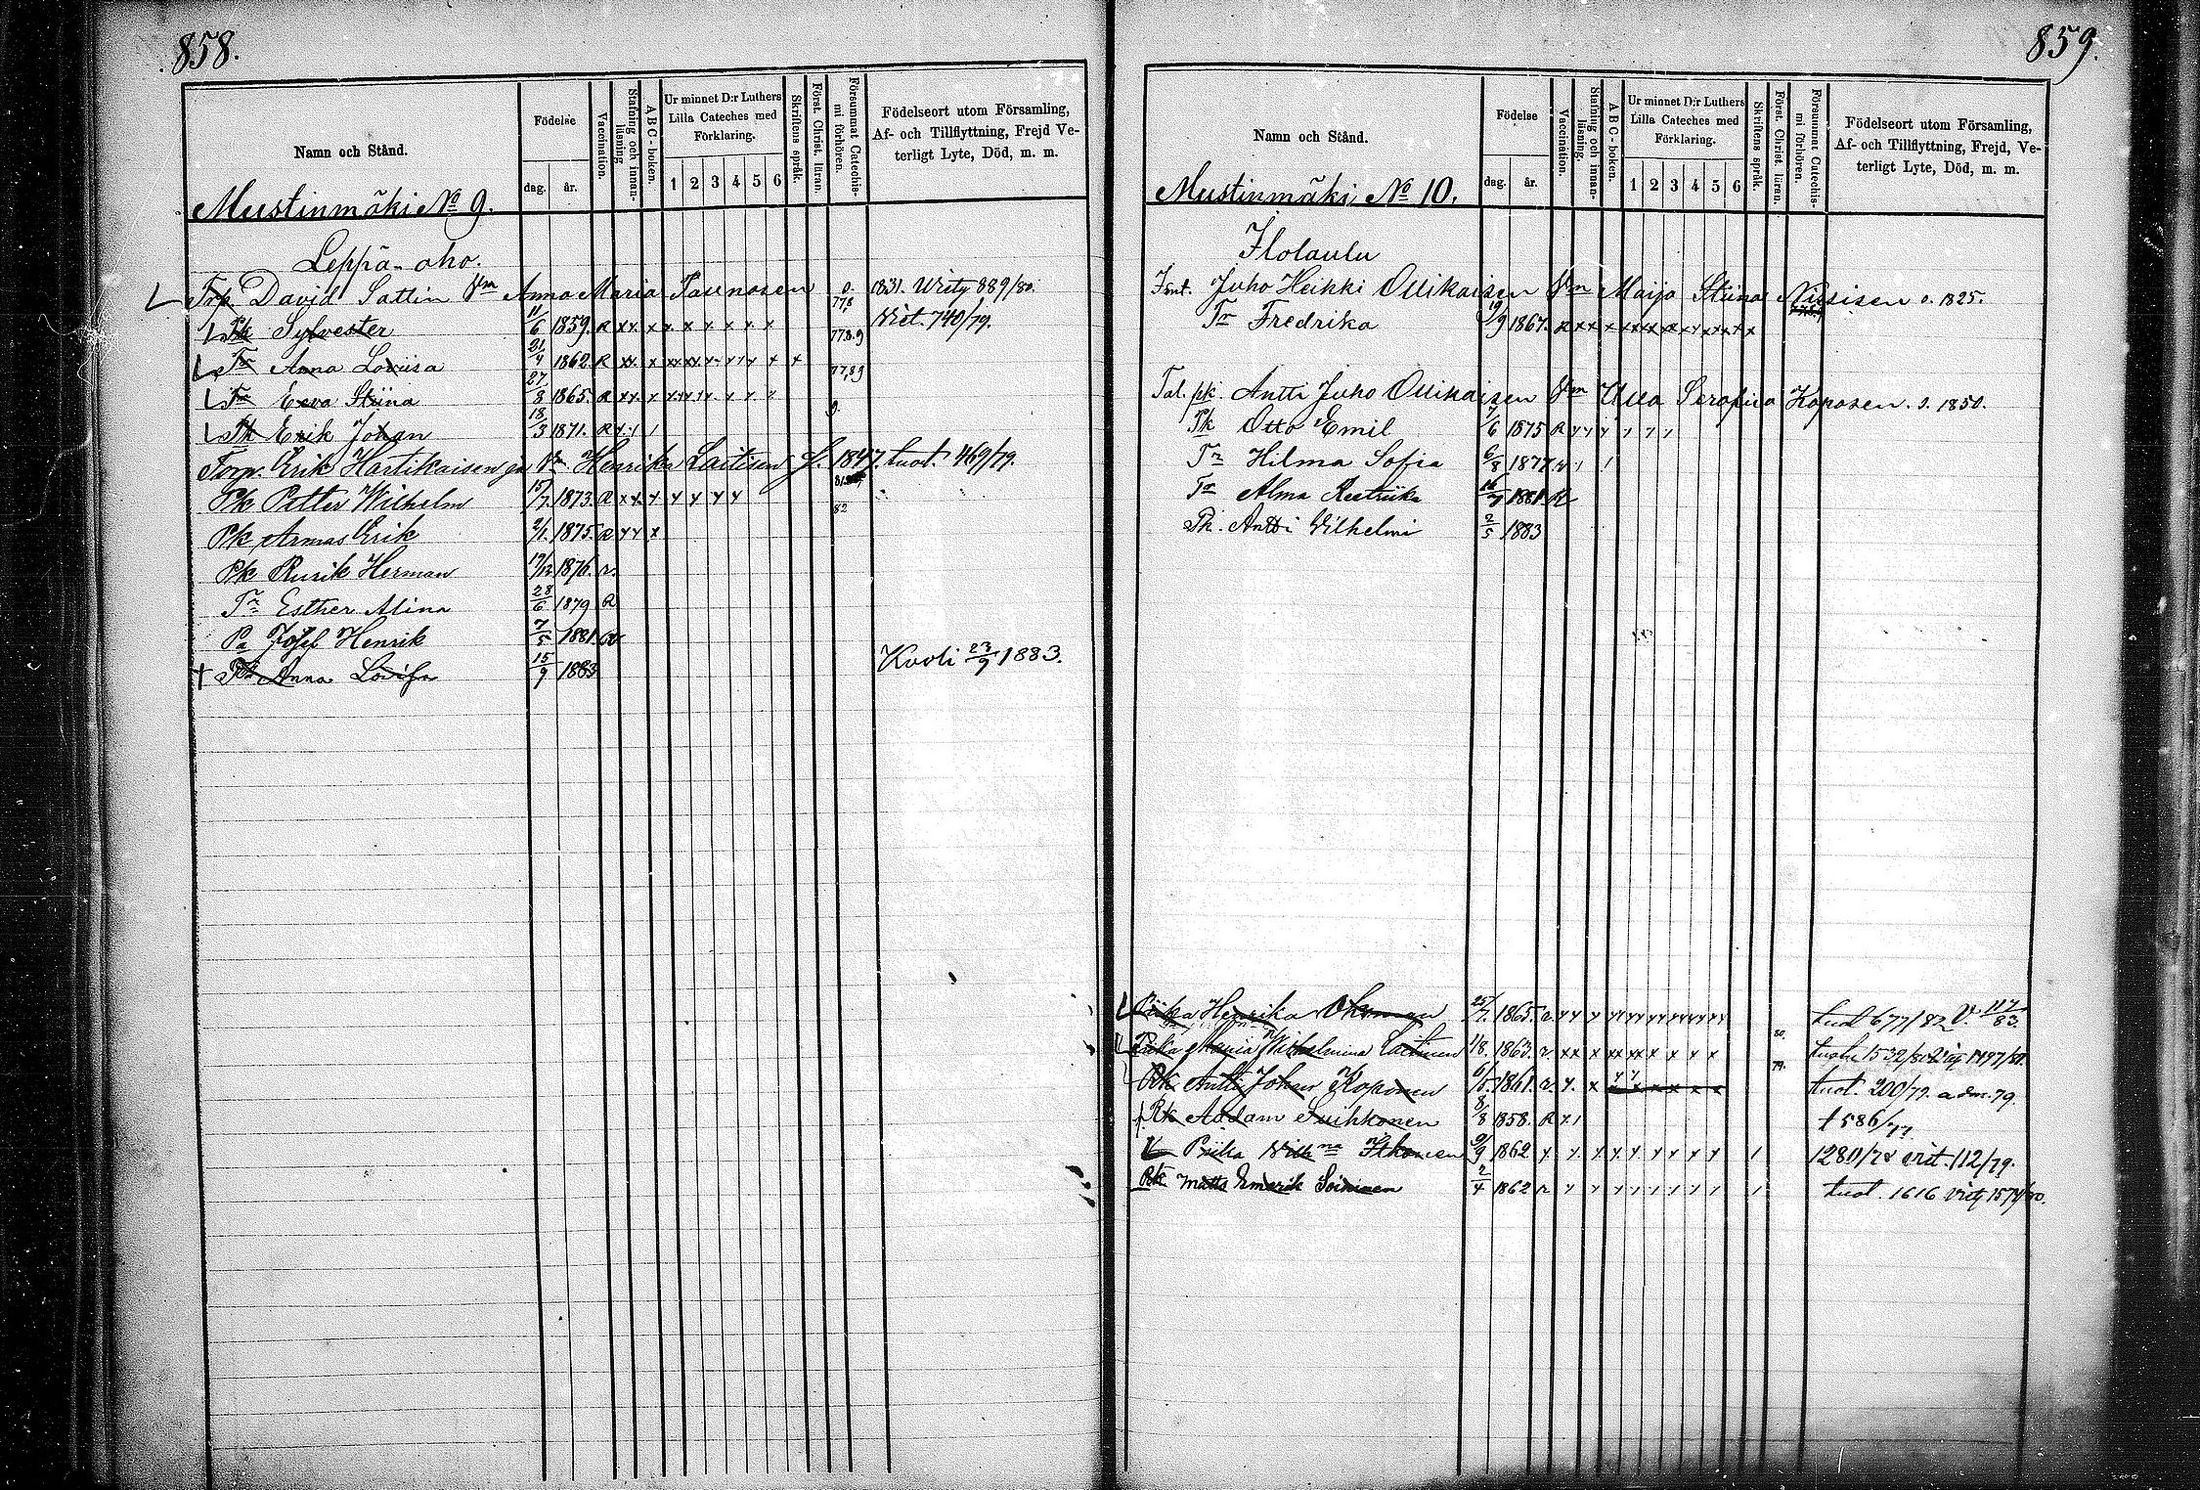 858.
Namn och Stånd.
Födelse
dag. år.
Vaccination.
Stafning och innanläsning
ABC-boken.
Ur minnet D:r Luthers
Lilla Cateches med
Förklaring.
1 2 3 4 5 6
Skriftens språk.
Först. Christ. läran.
Försummat Catechismi förhören.
Födelseort utom Församling,
Af- och Tillflyttning, Frejd Ve-
terligt Lyte, Död, m. m.
Mustinmäki No 9.
Leppä-aho.
Trp. David Sattin Hm Anna Maria Tasinosen 0. 1831. Wirty 889/80.
Pk Sylvester 11/6 1859. R x x x x x x x x x 77,8 Wirt. 740/79.
Tr Anna Lovisa 21/4 1862. R xx. x 778.9
Tr Eeva Stiina 27/8 1865. R 77,89
Pk Erik Johan 18/3 1871. R 0.
Torp. Erik Hartikaisen ja Vr Henrika Laitisen S. 1847. tuot. 469/79.
Pk Petter Wilhelm 15/7 1873. R x x x x x x x
Pk Armas Erik 2/1 1875. R x x x 82
Pk Rurik Herman 19/12 1876. r.
Tr Esther Alina 28/6 1879 R
Pa Josef Henrik 7/5 1881.
+ Tr Anna Lovisa 15/9 1883 Kuoli 23/9 1883.
859.
Namn och Stånd.
Födelse
dag. år.
Vaccination.
Stafning och innanläsning.
ABC-boken.
Ur minnet D:r Luthers
Lilla Cateches med
Förklaring.
1 2 3 4 5 6
Skriftens språk.
Först. Christ. läran.
Försummat Catechismi förhören.
Födelseort utom Församling,
Af- och Tillflyttning, Frejd, Ve-
terligt Lyte, Död, m. m.
Mustinmäki No 10.
Ilolaulu
Juho Heikki Ollikaisen Hm Maija Stiina Niisisen s. 1825.
Tr Fredrika 19/9 1867.
Tal. pk. Antti Juho Ollikaisen Hm Ulla Serafiia Koposen. s. 1850.
Pk Otto Emil 7/6 1875 R
Tr Hilma Sofia 6/8 1877
Tr Alma Kestriika 16/7 1881. R
Pk. Antti Vilhelmi 2/5 1883
Piika Henrika Ikonen 25/7. 1865. r. tuot 677/82 V. 117/83.
Piika Maria Wilhelmina Laitinen 1/8. 1863. r. 80.
Rk. Antti Johan Koponen 6/5. 1861. r. 79. tuot. 200/79. adm. 79.
Rk Aadam Suihkonen 8/8 1858. R +586/77
Piika Wilhna Ikonen 9/9 1862 1280/78 virt. 112/79.
Rk Matts Emerik Soininen 2/4 1862 r tuot. 1616 virty 1574/80.